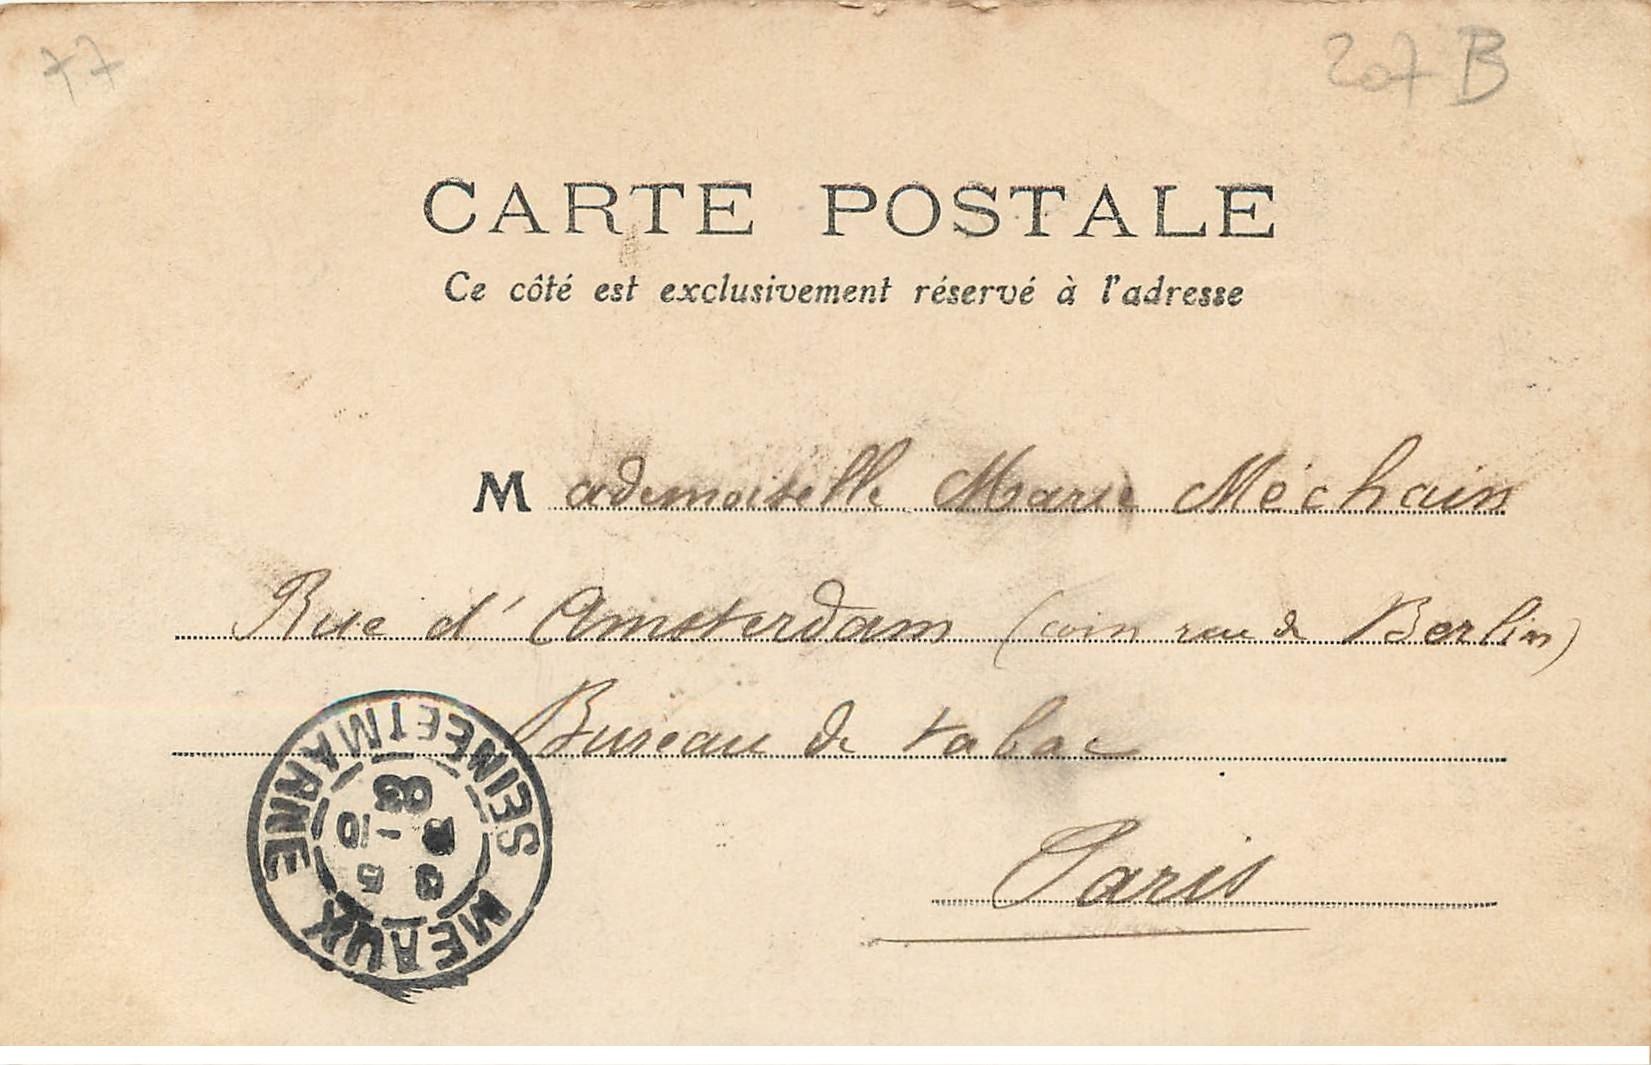 77
207 B
CARTE POSTALE
Ce côté est exclusivement réservé à l'adresse
Mademoiselle Marie Méchain
Rue d'Amsterdam (coin rue de Berlin)
Bureau de tabac
Paris
MEAUX
SEINE ET MARNE
03